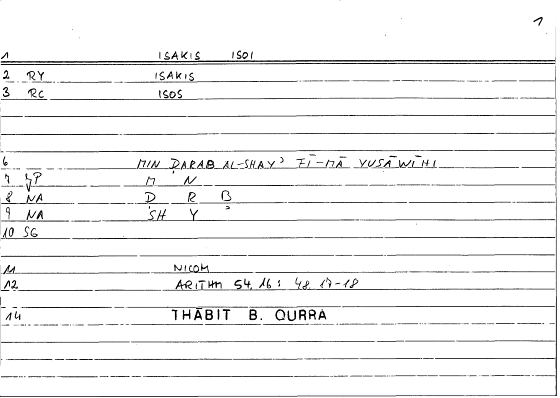 1
1 ISAKIS ISOI
2 RY ISAKIS
3 RC ISOS
6 MIN ḌARAB AL-SHAYʾ FĪ-MĀ YUSĀWĪHI
7 M N
8 NA Ḍ R B
9 NA SH Y ʾ
10 SG
11 NICOM
12 ARITHM 54, 16 : 48, 17-18
14 THĀBIT B. QURRA